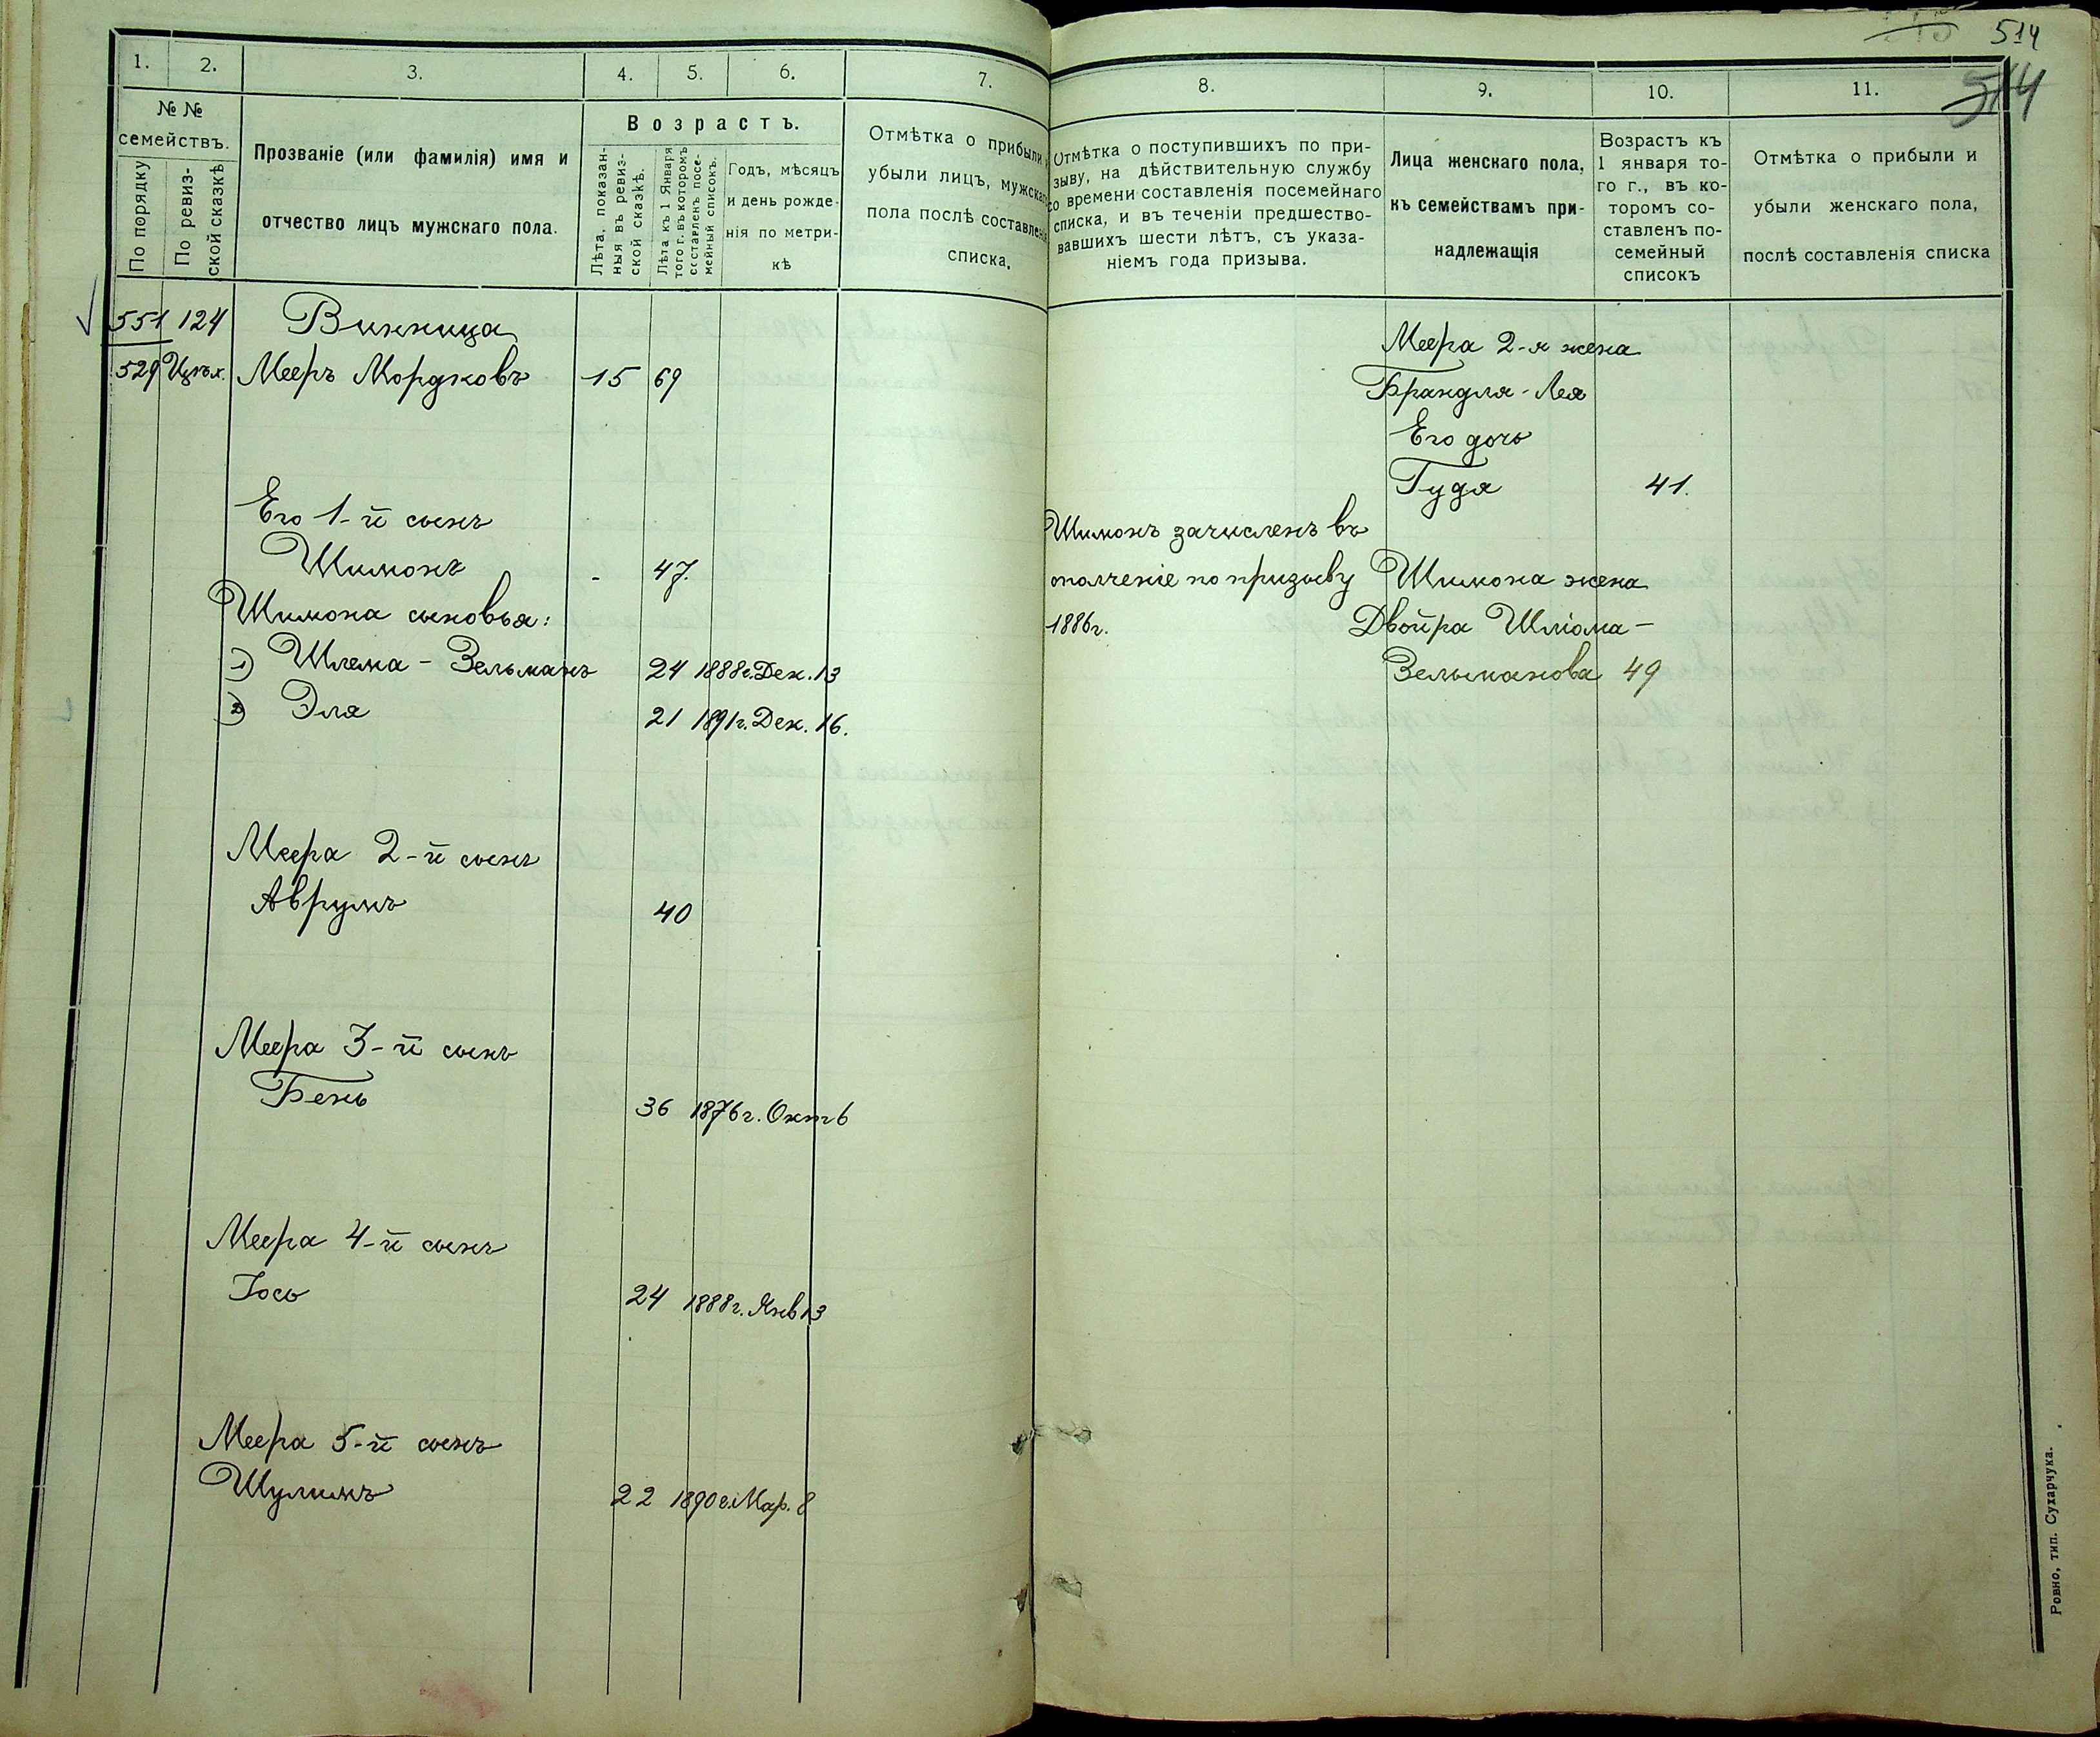 514
514
1.
2.
3.
4.
5.
6.
7.
№ №
семействъ.
По порядку
По ревиз-
ской сказкѣ
Прозваніе (или фамилія) имя и
отчество лицъ мужскаго пола.
Возрастъ.
Лѣта, показан-
ныя въ ревиз-
ской сказкѣ.
Лѣта къ 1 Января
того г. въ которомъ
составленъ посе-
мейный списокъ.
Годъ, мѣсяцъ
и день рожде-
нія по метри-
кѣ
Отмѣтка о прибыли и
убыли лицъ, мужскаго
пола послѣ составленія
списка.
551 124 Винница
529 Мееръ Мордковъ 15 69
Его 1-й сынъ
Шимонъ - 47.
Шимона сыновья:
1) Шлема - Зельманъ 24 1888г. Дек. 13
2) Эля 21 1891г. Дек. 16.
Меера 2-й сынъ
Аврумъ 40
Меера 3-й сынъ
Бень 36 1876г. Окт 6
Меера 4-й сынъ
Іось 24 1888г. Янв 13
Меера 5-й сынъ
Шулимъ 22 1890г. Мар. 8
8.
9.
10.
11.
Отмѣтка о поступившихъ по при-
зыву, на дѣйствительную службу
со времени составленія посемейнаго
списка, и въ теченіи предшество-
вавшихъ шести лѣтъ, съ указа-
ніемъ года призыва.
Лица женскаго пола,
къ семействамъ при-
надлежащія
Возрастъ къ
1 января то-
го г., въ ко-
торомъ со-
ставленъ по-
семейный
списокъ
Отмѣтка о прибыли и
убыли женскаго пола,
послѣ составленія списка
Меера 2-я жена
Брандля - Лея
Его дочь
Гудя 41.
Шимонъ зачисленъ въ
ополченіе по призыву
1886г.
Шимона жена
Двойра Шліома-
Зельманова 49
Ровно, тип. Сухарчука.